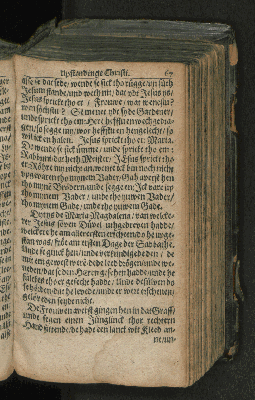 Upstandinge Christi. 67
alse se dat sede, wende se sick tho rügge, un süth
Jesum stande, und weth nit, dat ydt Jesus ys.
Jesus sprickt tho er / Frouwe / wat wenestu?
wen söchstu? Se mene ydt sy de Gardener /
unde sprickt tho em: Here heffstu en wechgedra-
gen / so segge my / wor heffstu en hengelecht / so
wil ick en halen. Jesus sprickt tho er: Maria.
Do wende se sick umme / unde sprickt tho em:
Rabbuni dat heth Meister / Jesus sprickt tho
er Röhre my nicht an wente ick bin noch nicht
upgevaren tho mynem Vader / Gah averst hen
tho mynen Brödern unde segge en: Ick vare up
tho mynem Vader / unde tho juwem Vader /
tho mynem Gade / unde tho juwem Gade.
Dit ys de Maria Magdalena / van welcke-
rer Jesus söven Düvel uthgedreven hadde /
welckere he am allerersten erschenen / do he upge-
stan was / fröe am ersten Dage der Sabbathe.
Unde se ginck hen / unde verkündigede den / de
mit em gewest weren de dar leed drögen / unde we-
neden / dat se den Heren geseen hadde unde he
sülckes tho er gesecht hadde / Unde desülven do
se hörden / dat he levede / unde er were erschenen /
gelöveden se ydt nicht.
De Frouwen averst gingen hen in dat Graff /
unde segen einen Jüngelinck thor rechtern
Handt sitten / de hadt ein lanck wit Kleed an-